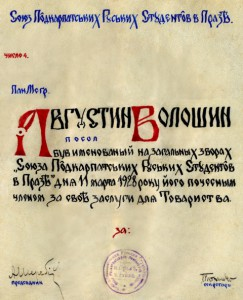 Союз Подкарпатських Руських Студентов в Празѣ.
число 4.
Пан Мгр.
Августин Волошин
посол
був именованый на загальных зборах
"Союза Подкарпатських Руських Студентов
в Празѣ" дня 11 марта 1928 року його почесным
членом за своѣ заслуги для Товариства.
за:
предсидник
секретарь